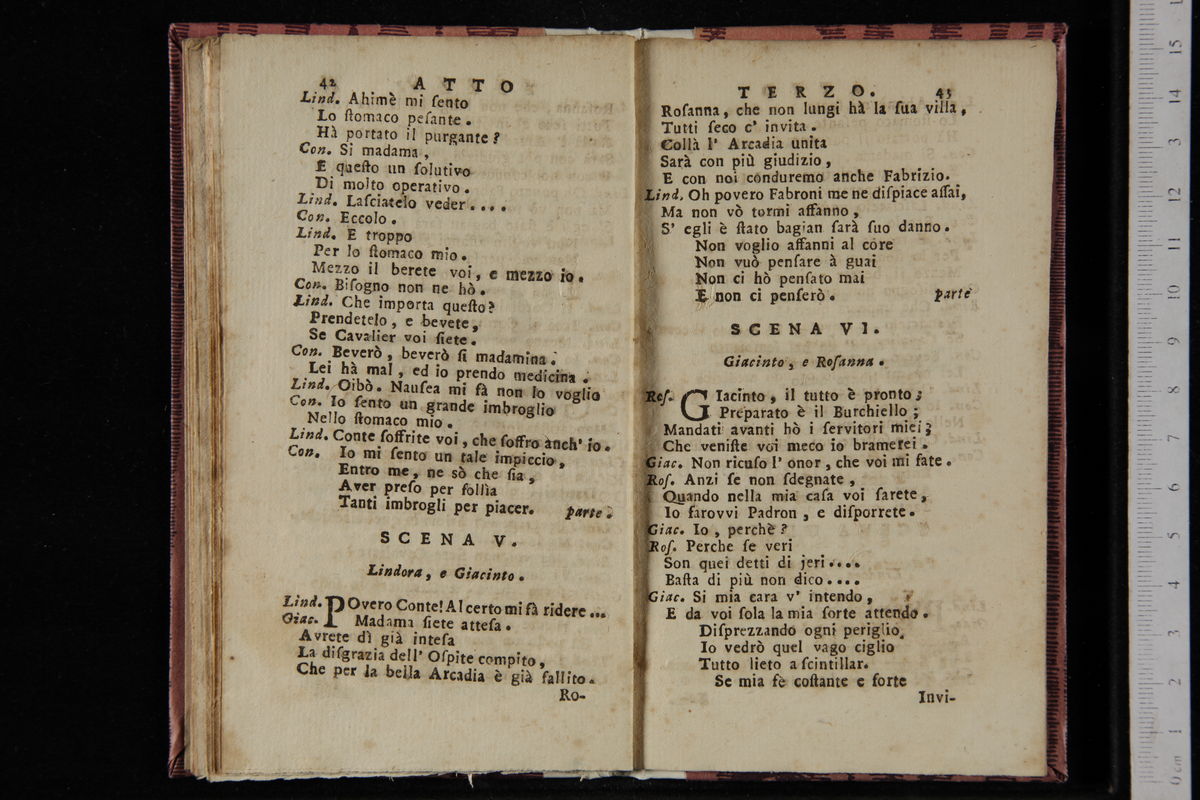 42 ATTO
Lind. Ahimè mi ſento
Lo ſtomaco peſante.
Hà portato il purgante?
Con. Si madama,
E queſto un ſolutivo
Di molto operativo.
Lind. Laſciatelo veder....
Con. Eccolo.
Lind. E troppo
Per lo ſtomaco mio.
Mezzo il berete voi, e mezzo io.
Con. Biſogno non ne hò.
Lind. Che importa queſto?
Prendetelo, e bevete,
Se Cavalier voi ſiete.
Con. Beverò, beverò ſi madamina.
Lei hà mal, ed io prendo medicina.
Lind. Oibò. Nauſea mi fà non lo voglio
Con. Io ſento un grande imbroglio
Nello ſtomaco mio.
Lind. Conte ſoffrite voi, che ſoffro anch' io.
Con. Io mi ſento un tale impiccio,
Entro me, ne sò che ſia,
Aver preſo per follìa
Tanti imbrogli per piacer. parte.
SCENA V.
Lindora, e Giacinto.
Lind. POvero Conte! Al certo mi fà ridere...
Giac. Madama ſiete atteſa.
Avrete dì già inteſa
La diſgrazia dell' Oſpite compito,
Che per la bella Arcadia è già fallito.
Ro-
TERZO. 43
Roſanna, che non lungi hà la ſua villa,
Tutti ſeco c' invita.
Collà l' Arcadia unita
Sarà con più giudizio,
E con noi conduremo anche Fabrizio.
Lind. Oh povero Fabroni me ne diſpiace aſſai,
Ma non vò tormi affanno,
S' egli è ſtato bagian ſarà ſuo danno.
Non voglio affanni al core
Non vuò penſare à guai
Non ci hò penſato mai
E non ci penſerò. parte
SCENA VI.
Giacinto, e Roſanna.
Roſ. GIacinto, il tutto è pronto;
Preparato è il Burchiello;
Mandati avanti hò i ſervitori miei;
Che veniſte voi meco io bramerei.
Giac. Non ricuſo l' onor, che voi mi fate.
Roſ. Anzi ſe non ſdegnate,
Quando nella mia caſa voi ſarete,
Io farovvi Padron, e diſporrete.
Giac. Io, perchè?
Roſ. Perche ſe veri
Son quei detti di jeri....
Baſta di più non dico....
Giac. Si mia cara v' intendo,
E da voi ſola la mia ſorte attendo.
Diſprezzando ogni periglio,
Io vedrò quel vago ciglio
Tutto lieto a ſcintillar.
Se mia fè coſtante e forte
Invi-